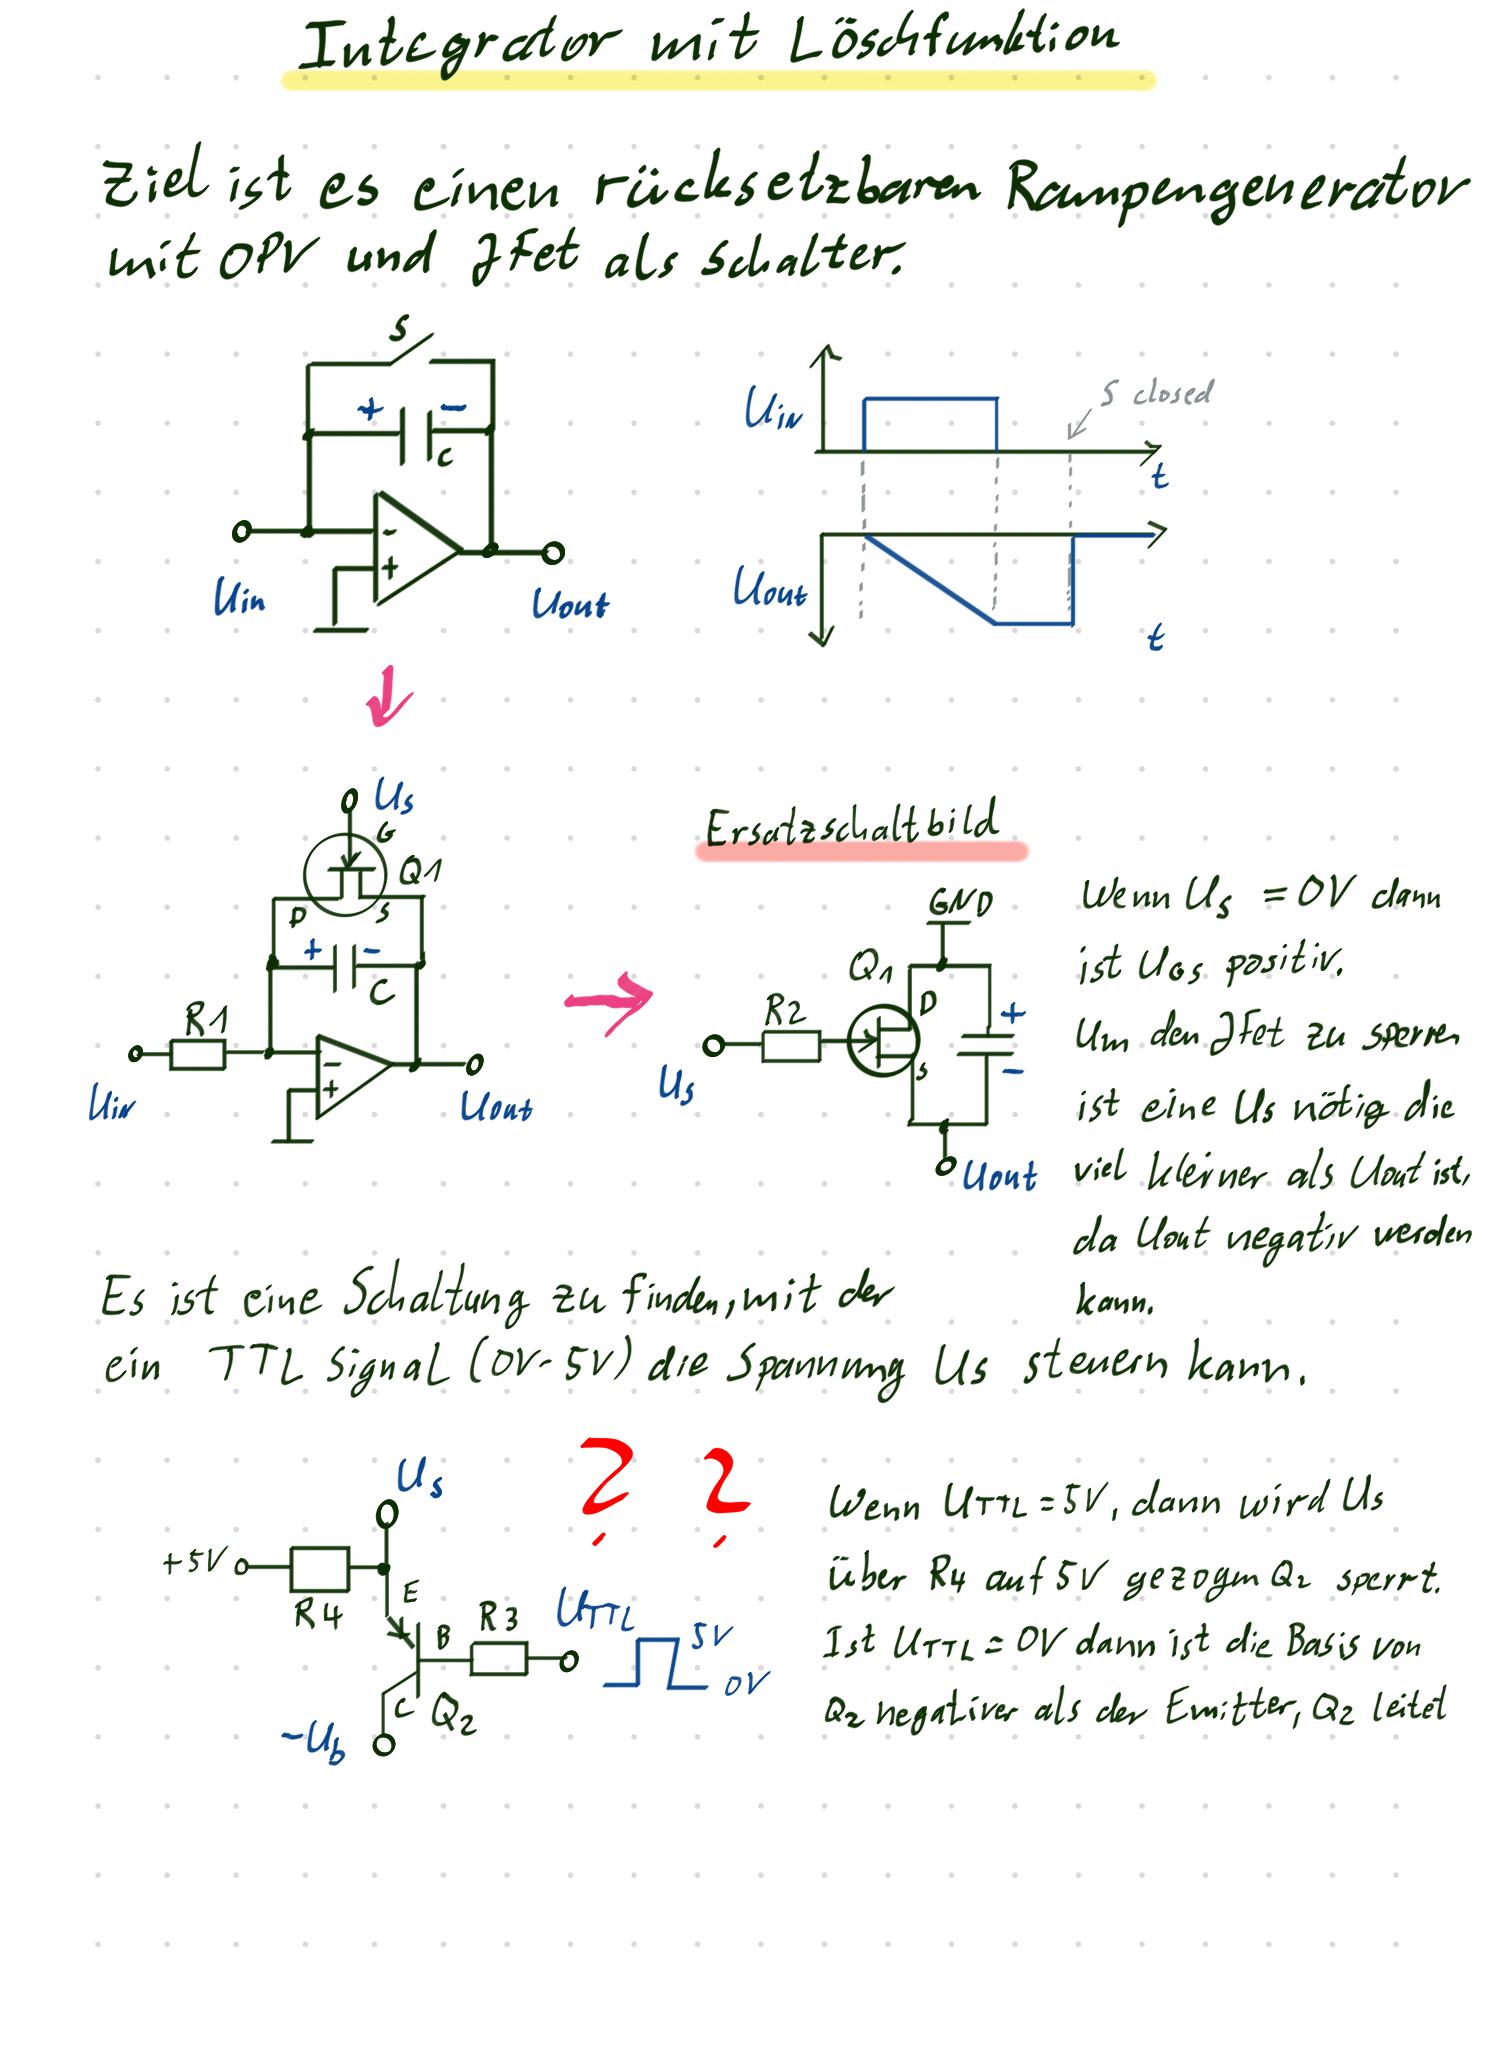 Integrator mit Löschfunktion
Ziel ist es einen rücksetzbaren Rampengenerator
mit OPV und JFet als Schalter.
S
+ -
C
-
+
Uin
Uout
Uin
S closed
t
Uout
t
Us
G
Q1
D
S
+ -
C
R1
-
+
Uin
Uout
Ersatzschaltbild
GND
Q1
D
R2
+
S
-
Us
Uout
Wenn Us = 0V dann
ist UGS positiv.
Um den JFet zu sperren
ist eine Us nötig die
viel kleiner als Uout ist,
da Uout negativ werden
kann.
Es ist eine Schaltung zu finden, mit der
ein TTL Signal (0V-5V) die Spannung Us steuern kann.
Us
? ?
+5V
R4
E
B
R3
UTTL
5V
0V
C
Q2
-Ub
Wenn UTTL = 5V, dann wird Us
über R4 auf 5V gezogen Q2 sperrt.
Ist UTTL = 0V dann ist die Basis von
Q2 negativer als der Emitter, Q2 leitet